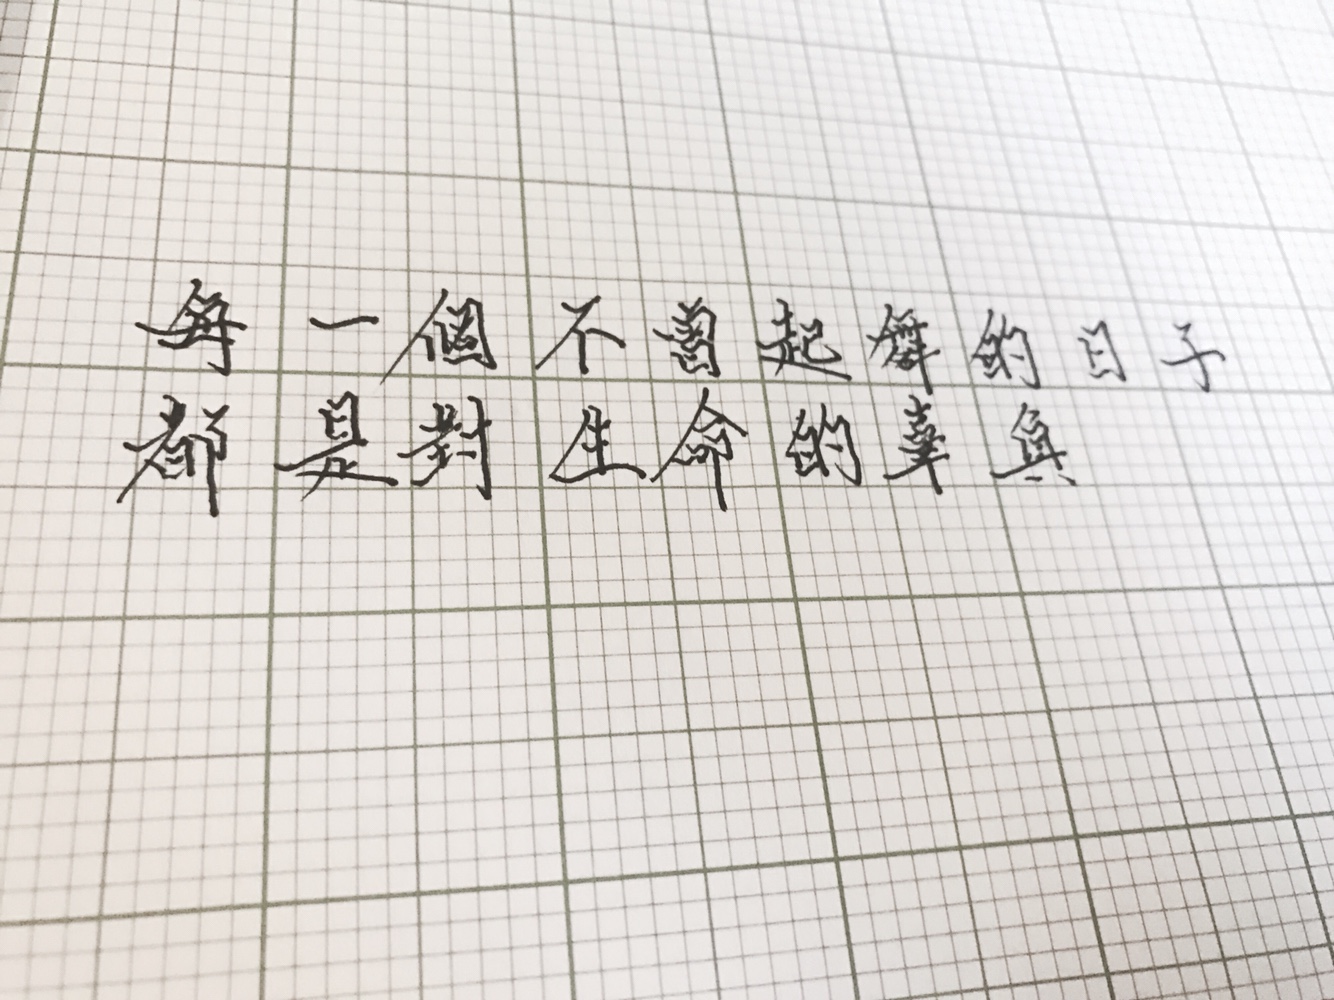 每一個不曾起舞的日子
都是對生命的辜負